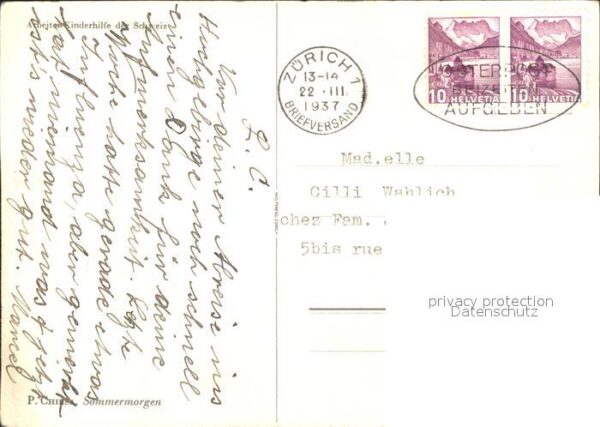 Arbeiter-Kinderhilfe der Schweiz
L. C.
Vor deiner Abreise ins
Hochgebirge noch schnell
einen Dank für deine
Aufmerksamkeit. Letzte
Woche hatte gerade etwas
Influenza, aber gemerkt
hat niemand was & jetzt
ists wieder gut. Marcel
P. CHIESA, Sommermorgen
ZÜRICH 1
13-14
22. III.
1937
BRIEFVERSAND
OSTERPOST
BEIZEITEN
AUFGEBEN
10 HELVETIA
10 HELVETIA
Mad.elle
Cilli Wahlich
chez Fam.
5bis rue
privacy protection
Datenschutz